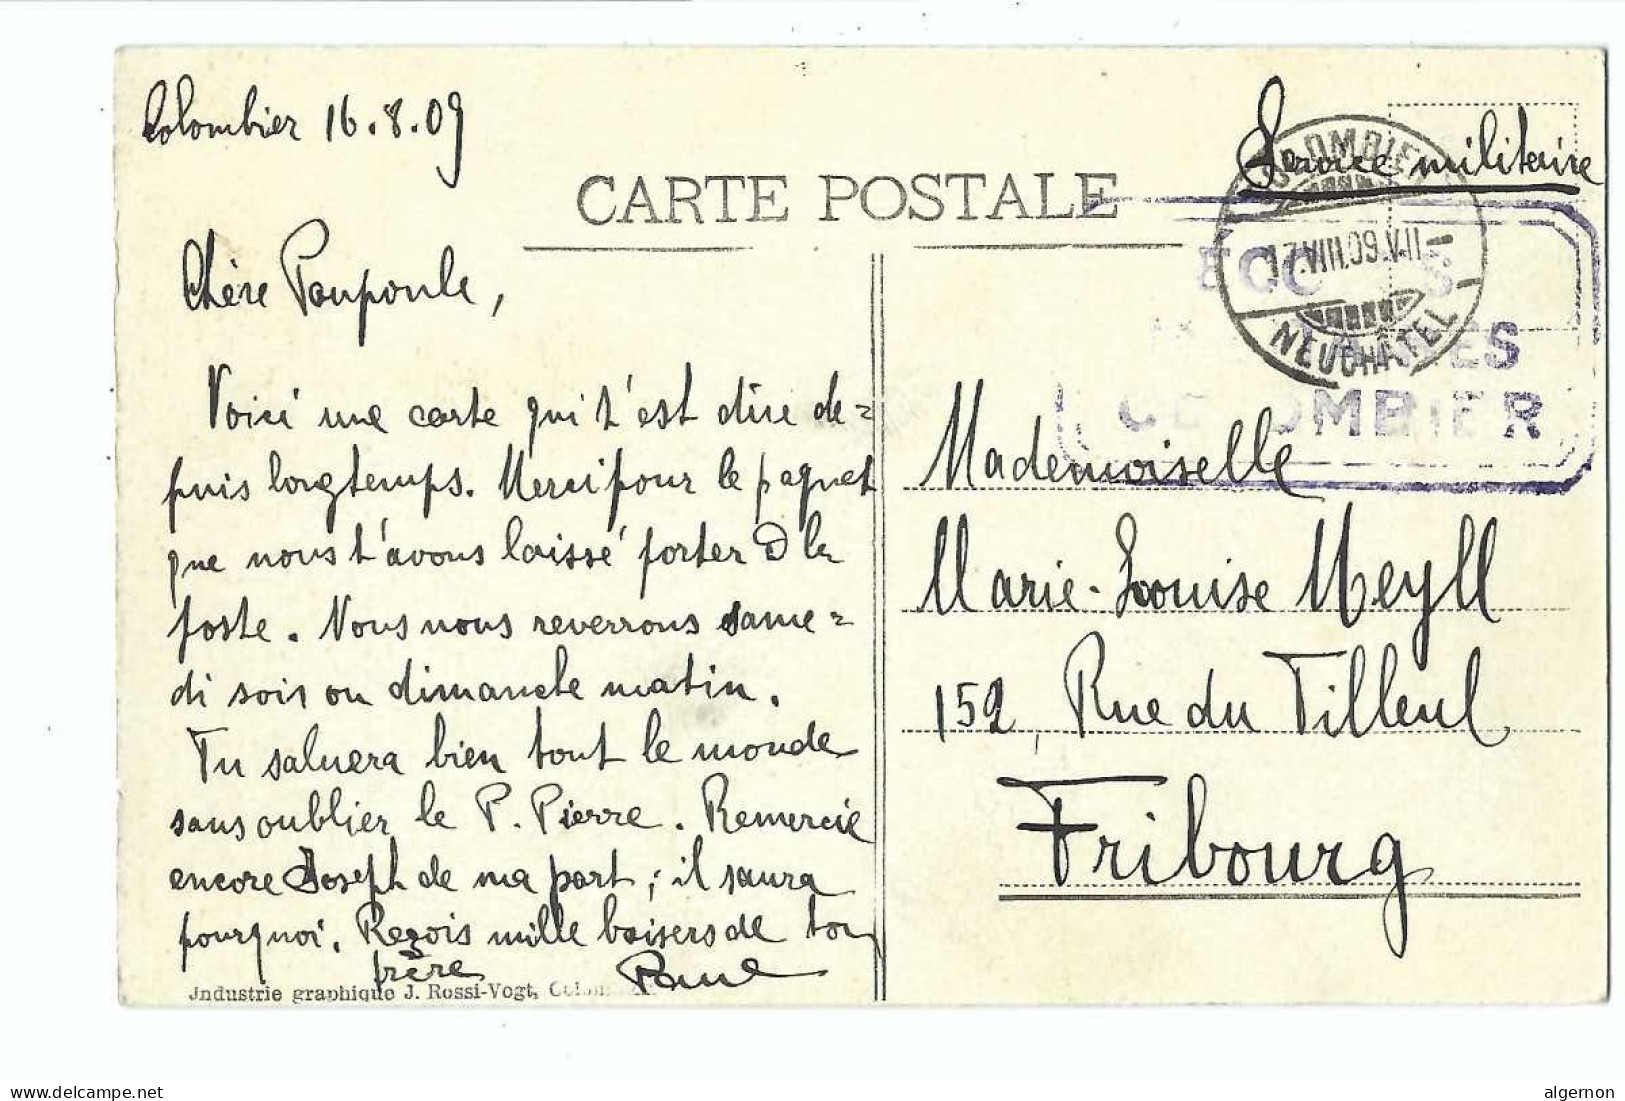 Colombier 16.8.09
Service militaire
CARTE POSTALE
COLOMBIER
NEUCHÂTEL
COLOMBIER
Chère Poupoule,
Voici une carte qui t'est due de=
puis longtemps. Merci pour le paquet
que nous t'avons laissé porter à la
poste. Nous nous reverrons same=
di soir ou dimanche matin.
Tu saluera bien tout le monde
sans oublier le P. Pierre. Remercie
encore Joseph de ma part; il saura
pourquoi. Reçois mille baisers de ton
frère Paul
Mademoiselle
Marie-Louise Meyll
152, Rue du Tilleul
Fribourg
Jndustrie graphique J. Rossi-Vogt,
© delcampe.net
algernon